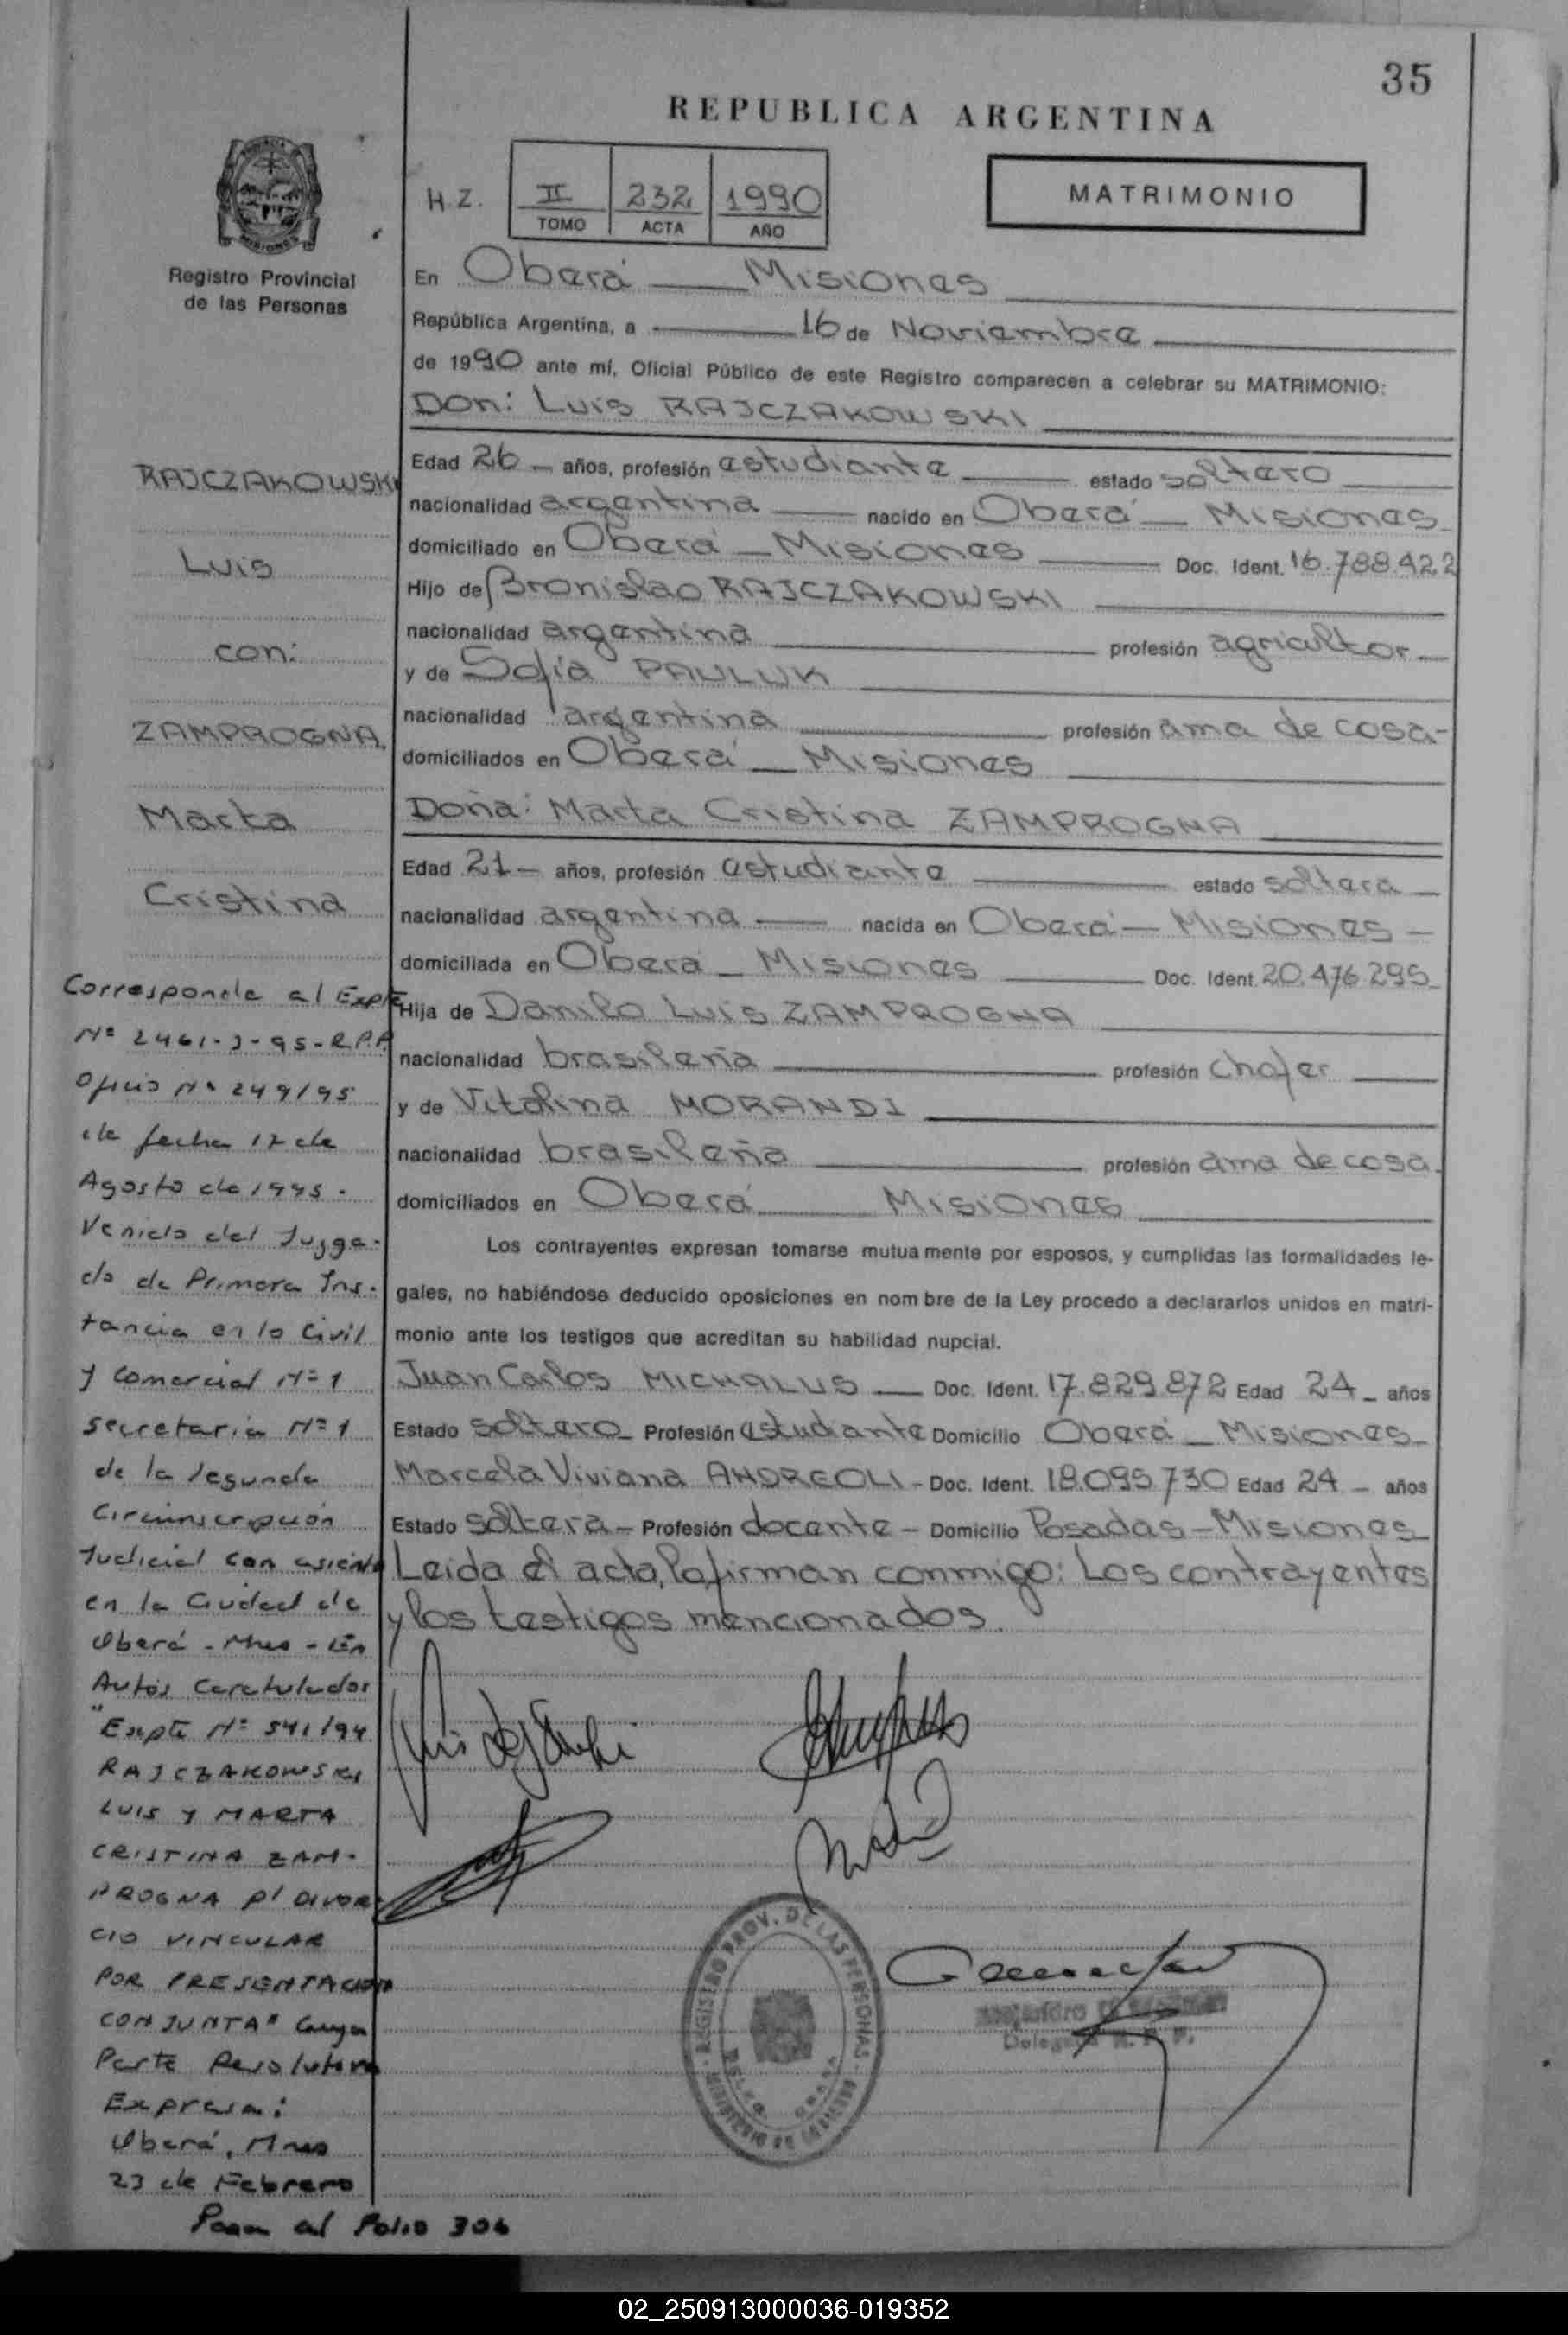 35
REPUBLICA ARGENTINA
H.Z.
II 232 1990
TOMO ACTA AÑO
MATRIMONIO
Registro Provincial
de las Personas
En Oberá Misiones
República Argentina, a 16 de Noviembre
de 1990 ante mí, Oficial Público de este Registro comparecen a celebrar su MATRIMONIO:
Don: Luis RAJCZAKOWSKI
Edad 26 años, profesión estudiante estado soltero
nacionalidad argentina nacido en Oberá Misiones
domiciliado en Oberá Misiones Doc. Ident. 16.788.422
Hijo de Bronislao RAJCZAKOWSKI
nacionalidad argentina profesión agricultor
y de Sofia PAULUK
nacionalidad argentina profesión ama de casa
domiciliados en Oberá Misiones
Doña: Marta Cristina ZAMPROGNA
Edad 21 años, profesión estudiante estado soltera
nacionalidad argentina nacida en Oberá Misiones
domiciliada en Oberá Misiones Doc. Ident. 20.476.295
Hija de Danilo Luis ZAMPROGNA
nacionalidad brasileña profesión chofer
y de Vitalina MORANDI
nacionalidad brasileña profesión ama de casa.
domiciliados en Oberá Misiones
Los contrayentes expresan tomarse mutuamente por esposos, y cumplidas las formalidades le-
gales, no habiéndose deducido oposiciones en nombre de la Ley procedo a declararlos unidos en matri-
monio ante los testigos que acreditan su habilidad nupcial.
Juan Carlos MICHALUS Doc. Ident. 17.829.872 Edad 24 años
Estado soltero Profesión estudiante Domicilio Oberá Misiones
Marcela Viviana ANDREOLI Doc. Ident. 18.095.730 Edad 24 años
Estado soltera Profesión docente Domicilio Posadas Misiones
Leida el acta, la firman conmigo: Los contrayentes
y los testigos mencionados.
RAJCZAKOWSKI
Luis
con:
ZAMPROGNA
Marta
Cristina
Corresponde al Expte
Nº 2461-J-95-R.P.P.
Oficio Nº 249/95
de fecha 17 de
Agosto de 1995.
Venido del Juzga-
do de Primera Ins-
tancia en lo Civil
y Comercial Nº 1
secretaria Nº 1
de la segunda
Circunscripción
Judicial con asiento
en la Ciudad de
Oberá - Mnes - En
Autos Caratulados
"Expte Nº 541/94
RAJCZAKOWSKI
LUIS Y MARTA
CRISTINA ZAM-
PROGNA P/ DIVOR-
CIO VINCULAR
POR PRESENTACION
CONJUNTA" Cuya
Parte Resolutiva
Expresa:
Oberá, Mnes
23 de Febrero
Pasa al Folio 306
REGISTRO PROV. DE LAS PERSONAS
MINISTERIO DE GOBIERNO
Alejandro
02_250913000036-019352